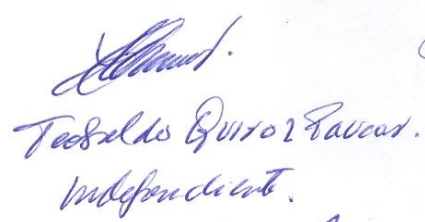 Teobaldo Quiroz Paucar.
Independiente.